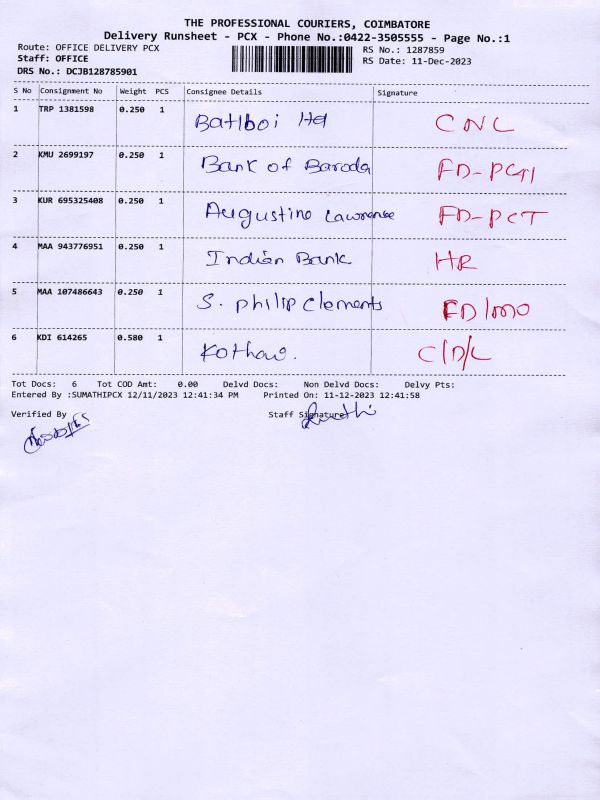 THE PROFESSIONAL COURIERS, COIMBATORE
Delivery Runsheet - PCX - Phone No.:0422-3505555 - Page No.:1
Route: OFFICE DELIVERY PCX RS No.: 1287859
Staff: OFFICE RS Date: 11-Dec-2023
DRS No.: DCJB128785901
S No Consignment No Weight PCS Consignee Details Signature
1 TRP 1381598 0.250 1 Batlboi CNC
2 KMU 2699197 0.250 1 Bank of Baroda
3 KUR 695325408 0.250 1 Augustine Lawrence FD-PCT
4 MAA 943776951 0.250 1 Indian Bank HR
5 MAA 107486643 0.250 1 S. Philip Clements FD/MO
6 KDI 614265 0.580 1 C/D/L
Tot Docs: 6 Tot COD Amt: 0.00 Delvd Docs: Non Delvd Docs: Delvy Pts:
Entered By :SUMATHIPCX 12/11/2023 12:41:34 PM Printed On: 11-12-2023 12:41:58
Verified By Staff Signature